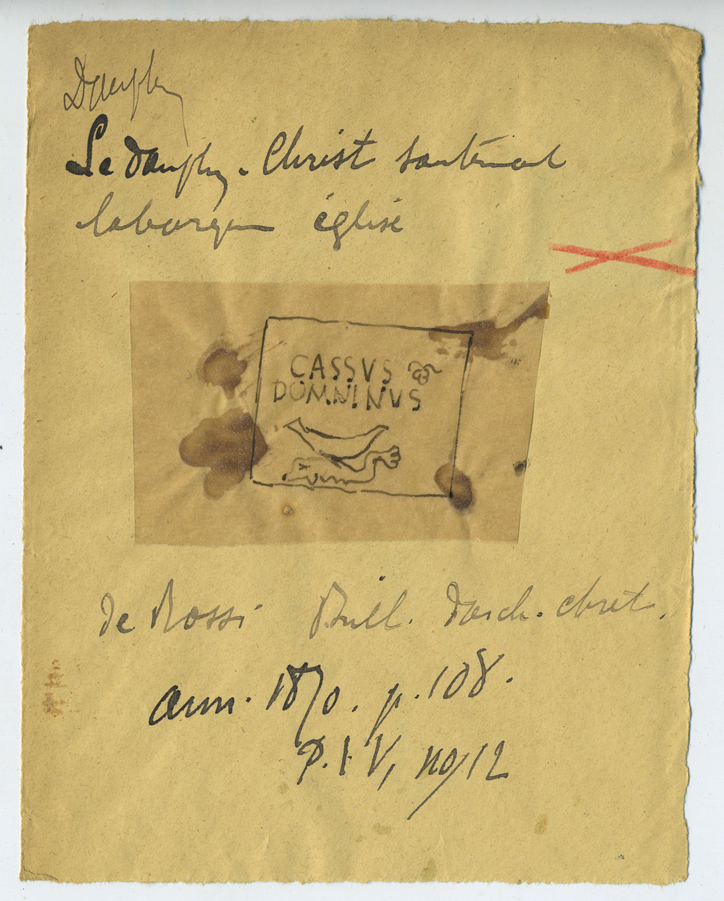 Dauphin
Le dauphin. Christ soutenant
la barque église
CASSVS
DOMNINVS
de Rossi Bull. d'arch. chret.
ann. 1870. p. 108.
P. IV, no 12